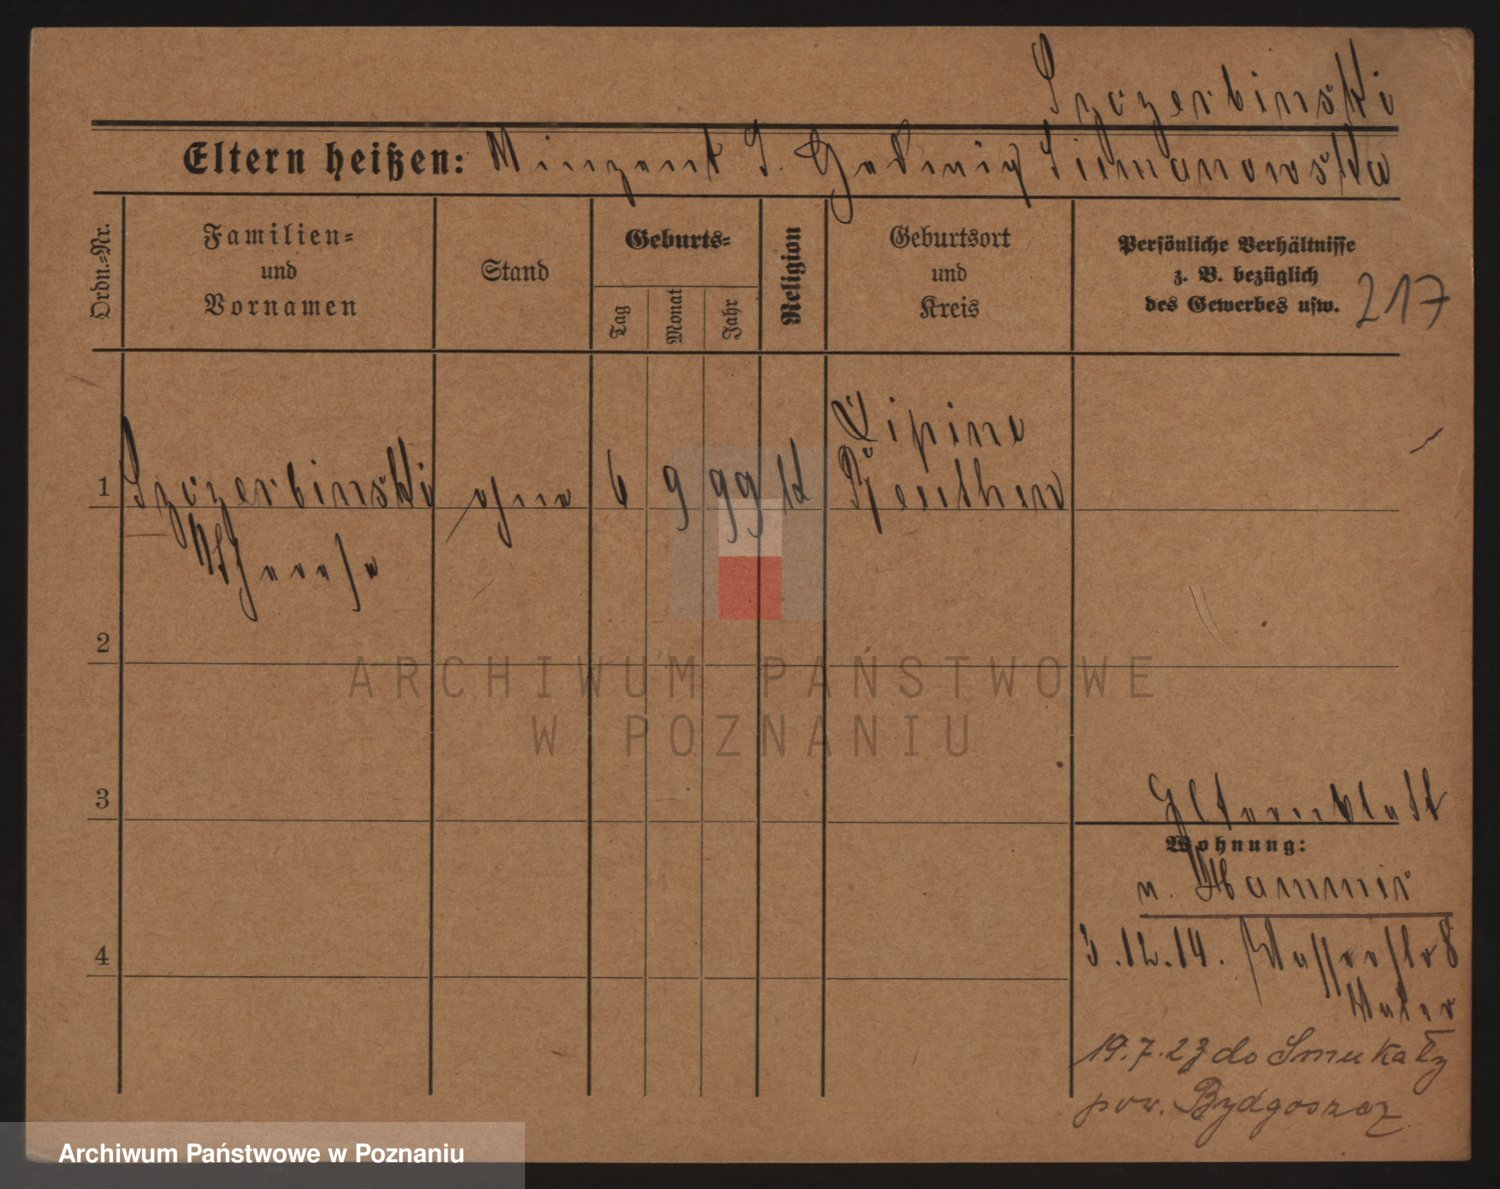 Szczerbinski
Eltern heißen: Vinzent S. Hedwig Simanowska
Ordn.-Nr.
Familien-
und
Vornamen
Stand
Geburts-
Tag
Monat
Jahr
Religion
Geburtsort
und
Kreis
Persönliche Verhältnisse
z. B. bezüglich
des Gewerbes usw.
217
1 Szczerbinski ohne 6 9 99 k Lipine
Beuthen
Therese
2
ARCHIWUM PAŃSTWOWE
W POZNANIU
3
Elternblatt
Wohnung:
v.
3.12.14. Wasserstr 8
4
19.7.23 do Smukały
pow. Bydgoszcz
Archiwum Państwowe w Poznaniu